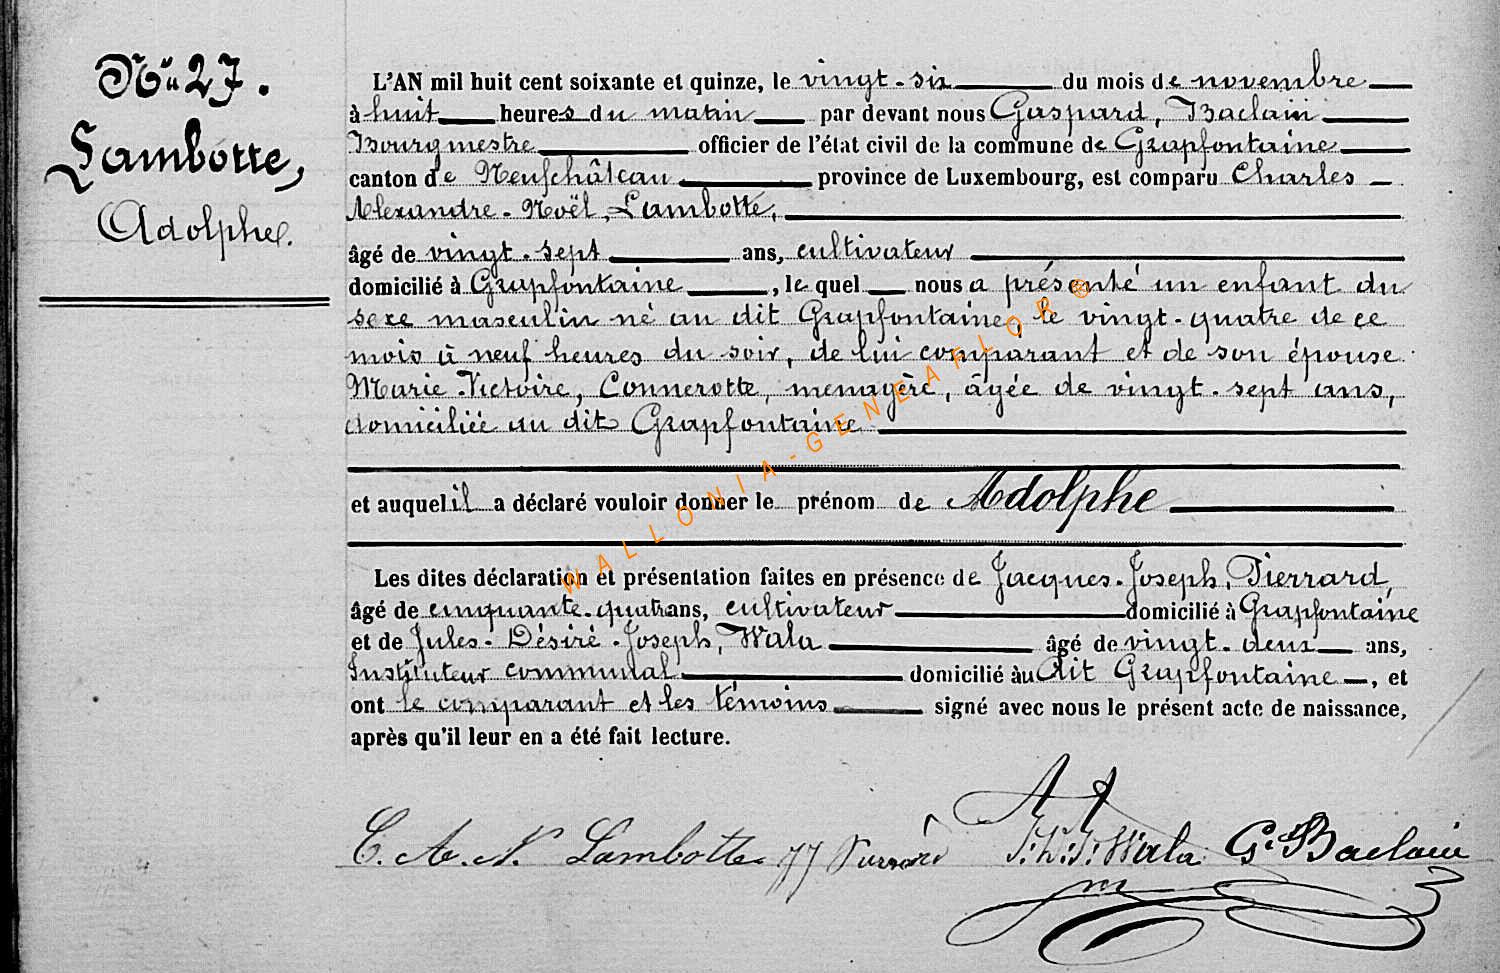 Nº 27.
Lambotte,
Adolphe.
L'AN mil huit cent soixante et quinze, le vingt-six du mois de novembre
à huit heures du matin par devant nous Gaspard, Baclain
Bourgmestre officier de l'état civil de la commune de Grapfontaine
canton de Neufchâteau province de Luxembourg, est comparu Charles
Alexandre-Noël, Lambotte,
âgé de vingt-sept ans, cultivateur
domicilié à Grapfontaine, le quel nous a présenté un enfant du
sexe masculin né au dit Grapfontaine, le vingt-quatre de ce
mois à neuf heures du soir, de lui comparant et de son épouse
Marie-Victoire, Connerotte, menagère, âgée de vingt-sept ans,
domiciliée au dit Grapfontaine
et auquel il a déclaré vouloir donner le prénom de Adolphe
Les dites déclaration et présentation faites en présence de Jacques-Joseph, Pierrard,
âgé de cinquante-quatre ans, cultivateur domicilié à Grapfontaine
et de Jules-Désiré-Joseph, Wala âgé de vingt-deux ans,
Instituteur communal domicilié au dit Grapfontaine, et
ont le comparant et les témoins signé avec nous le présent acte de naissance,
après qu'il leur en a été fait lecture.
C. A. N. Lambotte JJ Pierrard J. D. J. Wala G. Baclain
WALLONIA-GENEAFLOR®